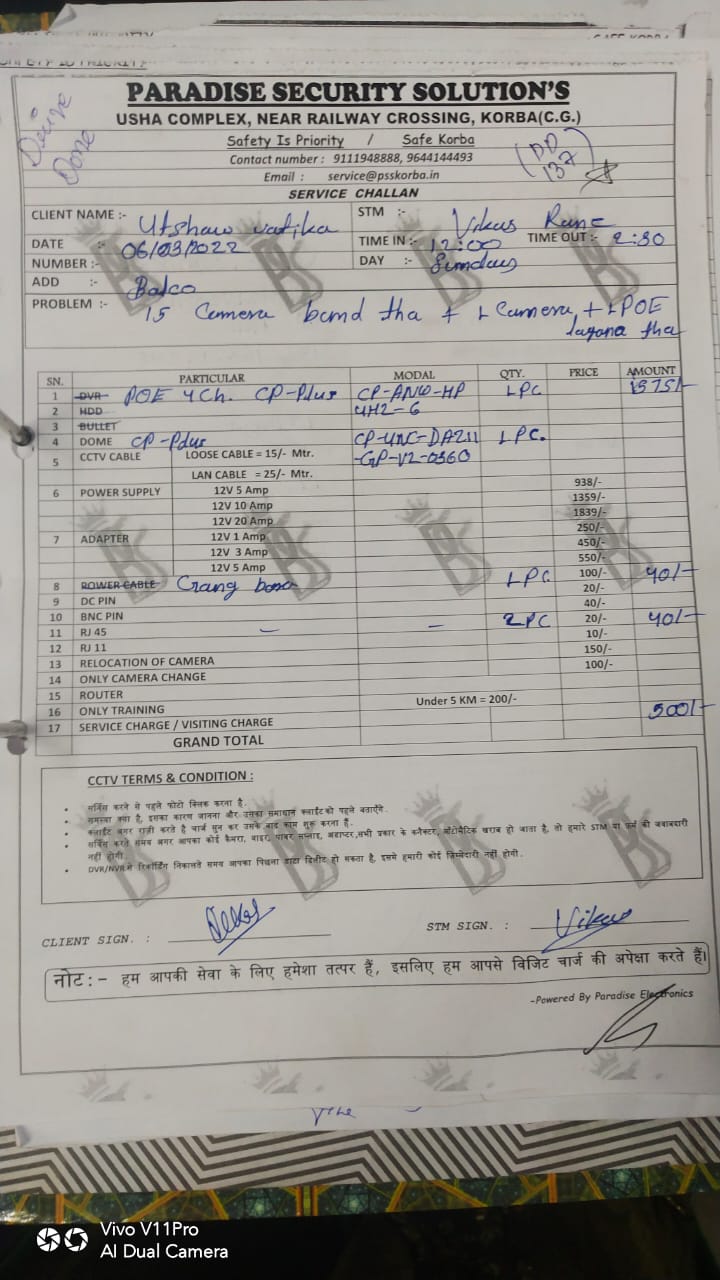 SAFE KORBA
PARADISE SECURITY SOLUTION'S
USHA COMPLEX, NEAR RAILWAY CROSSING, KORBA(C.G.)
Safety Is Priority / Safe Korba
Contact number : 9111948888, 9644144493
Email : service@psskorba.in
SERVICE CHALLAN
Done
DD
137
CLIENT NAME :- Utshaw vatika STM :- Vikas Rane
DATE :- 06/03/2022 TIME IN :- 12:00 TIME OUT :- 2:30
NUMBER :- DAY :- Sunday
ADD :- Balco
PROBLEM :- 15 Camera band tha + 1 Camera + 1 POE
lagana tha
SN. PARTICULAR MODAL QTY. PRICE AMOUNT
1 DVR POE 4Ch. CP-Plus CP-ANW-HP 1PC 1575/-
2 HDD 4H2-6
3 BULLET
4 DOME CP-Plus CP-UNC-DA211 1PC.
5 CCTV CABLE LOOSE CABLE = 15/- Mtr. -GP-V2-0360
LAN CABLE = 25/- Mtr.
6 POWER SUPPLY 12V 5 Amp 938/-
12V 10 Amp 1359/-
12V 20 Amp 1839/-
7 ADAPTER 12V 1 Amp 250/-
12V 3 Amp 450/-
12V 5 Amp 550/-
8 POWER CABLE 1PC 100/- 40/-
9 DC PIN 20/-
10 BNC PIN 40/-
11 RJ 45 - - 2PC 20/- 40/-
12 RJ 11 10/-
13 RELOCATION OF CAMERA 150/-
14 ONLY CAMERA CHANGE 100/-
15 ROUTER
16 ONLY TRAINING Under 5 KM = 200/-
17 SERVICE CHARGE / VISITING CHARGE 500/-
GRAND TOTAL
CCTV TERMS & CONDITION :
• सर्विस करने से पहले फोटो क्लिक करना है.
• समस्या क्या है, इसका कारण जानना और उसका समाधान क्लाईंट को पहले बताऐंगे.
• क्लाईंट अगर राज़ी करते है चार्ज सुन कर उसके बाद काम शुरू करना है.
• सर्विस करते समय अगर आपका कोई कैमरा, वाइर, पावर सप्लाइ, अडाप्टर,सभी प्रकार के कनैक्टर, ऑटोमैटिक खराब हो जाता है, तो हमारे STM या फर्म की जवाबदारी
नहीं होगी.
• DVR/NVR में रिकॉर्डिंग निकालते समय आपका पिछला डाटा डिलीट हो सकता है, इसमे हमारी कोई ज़िम्मेदारी नहीं होगी.
CLIENT SIGN. : STM SIGN. : Vikas
नोट:- हम आपकी सेवा के लिए हमेशा तत्पर हैं, इसलिए हम आपसे विजिट चार्ज की अपेक्षा करते हैं।
-Powered By Paradise Electronics
Vivo V11Pro
AI Dual Camera